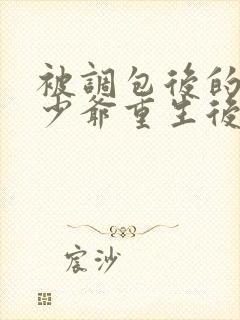 被調包後的
少爺重生後
宸沙